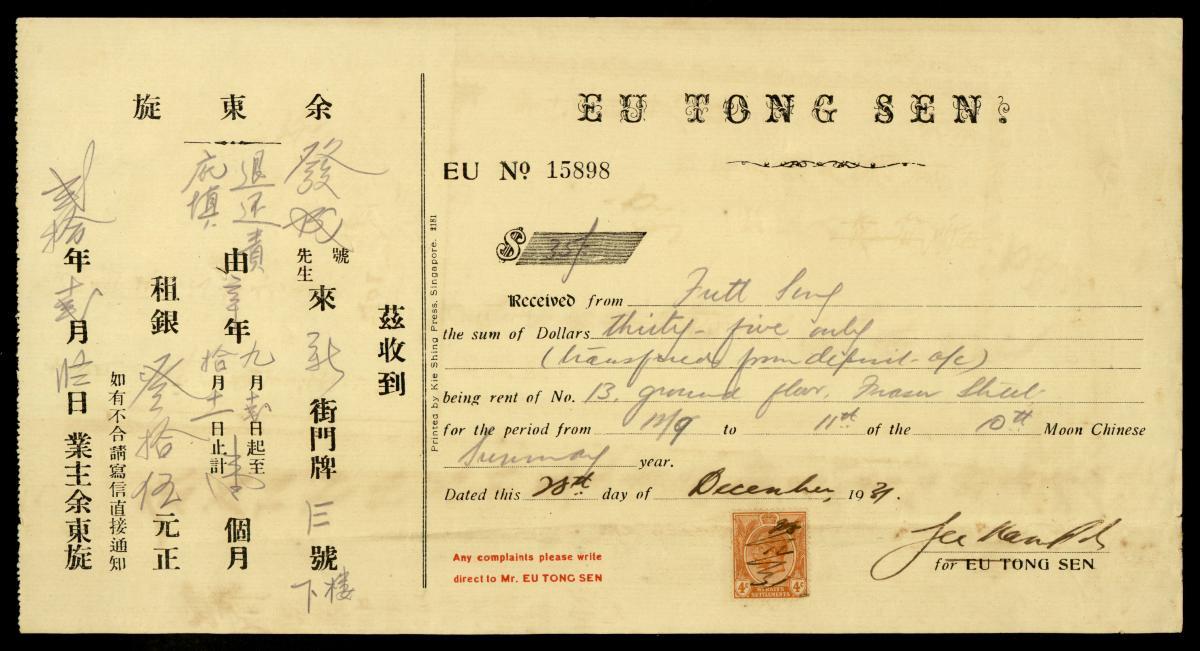 余東旋
茲收到
發
號
先生
來
新
街門牌
號
下楼
退还責
庇填
由
辛
年
九
月
日起至
拾
月
十一
日止計
個月
租銀
叁拾伍
元正
如有不合請寫信直接通知
年
月
日
業主余東旋
Printed by Kie Shing Press, Singapore. #181
EU TONG SEN.
EU No 15898
$ 35/
Received from Futt Sing
the sum of Dollars thirty-five only
(transfered from deposit a/c)
being rent of No. 13, ground floor, Fraser Street
for the period from 12/9 to 11th of the 10th Moon Chinese
year.
Dated this 28th day of December, 1931.
Any complaints please write
direct to Mr. EU TONG SEN
4c 4c
STRAITS
SETTLEMENTS
for EU TONG SEN